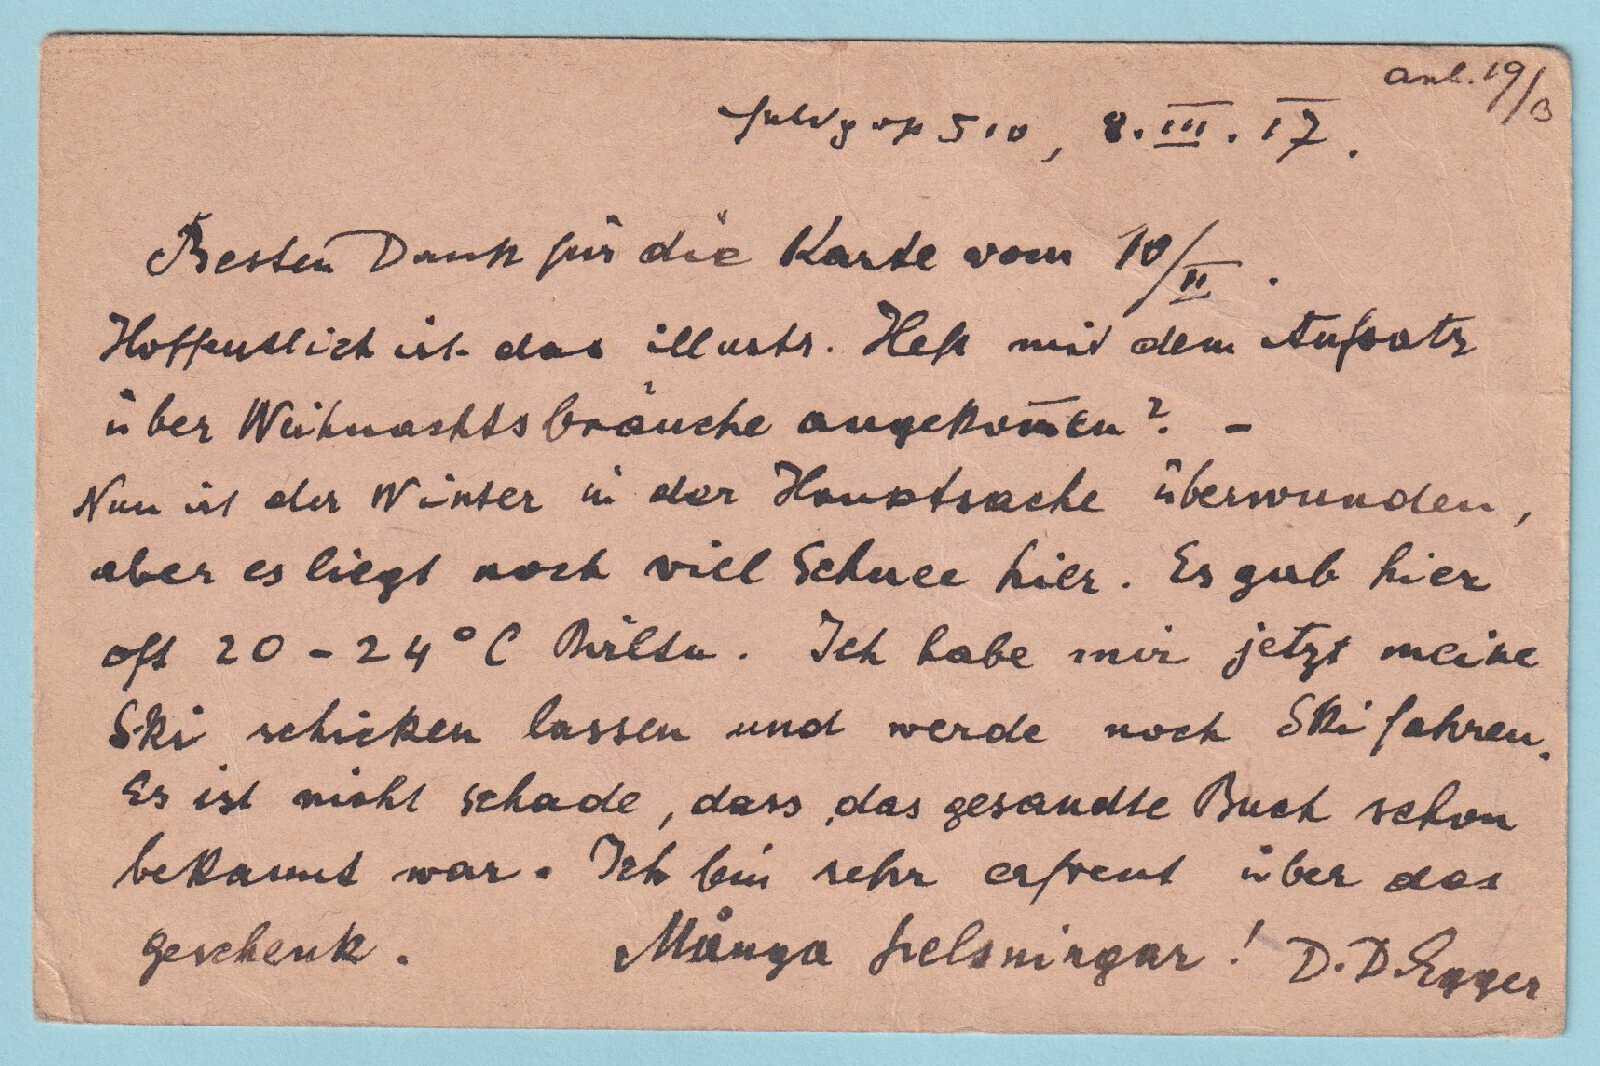 ank. 19/3
Feldpost 510, 8. III. 17.
Besten Dank für die Karte vom 10/II.
Hoffentlich ist das illustr. Heft mit dem Aufsatz
über Weihnachtsbräuche angekom̄en? –
Nun ist der Winter in der Hauptsache überwunden,
aber es liegt noch viel Schnee hier. Es gab hier
oft 20 – 24° C Kälte. Ich habe mir jetzt meine
Ski schicken lassen und werde noch Ski fahren.
Es ist nicht schade, dass das gesandte Buch schon
bekannt war. Ich bin sehr erfreut über das
Geschenk. Många helsningar! D. D. Egger